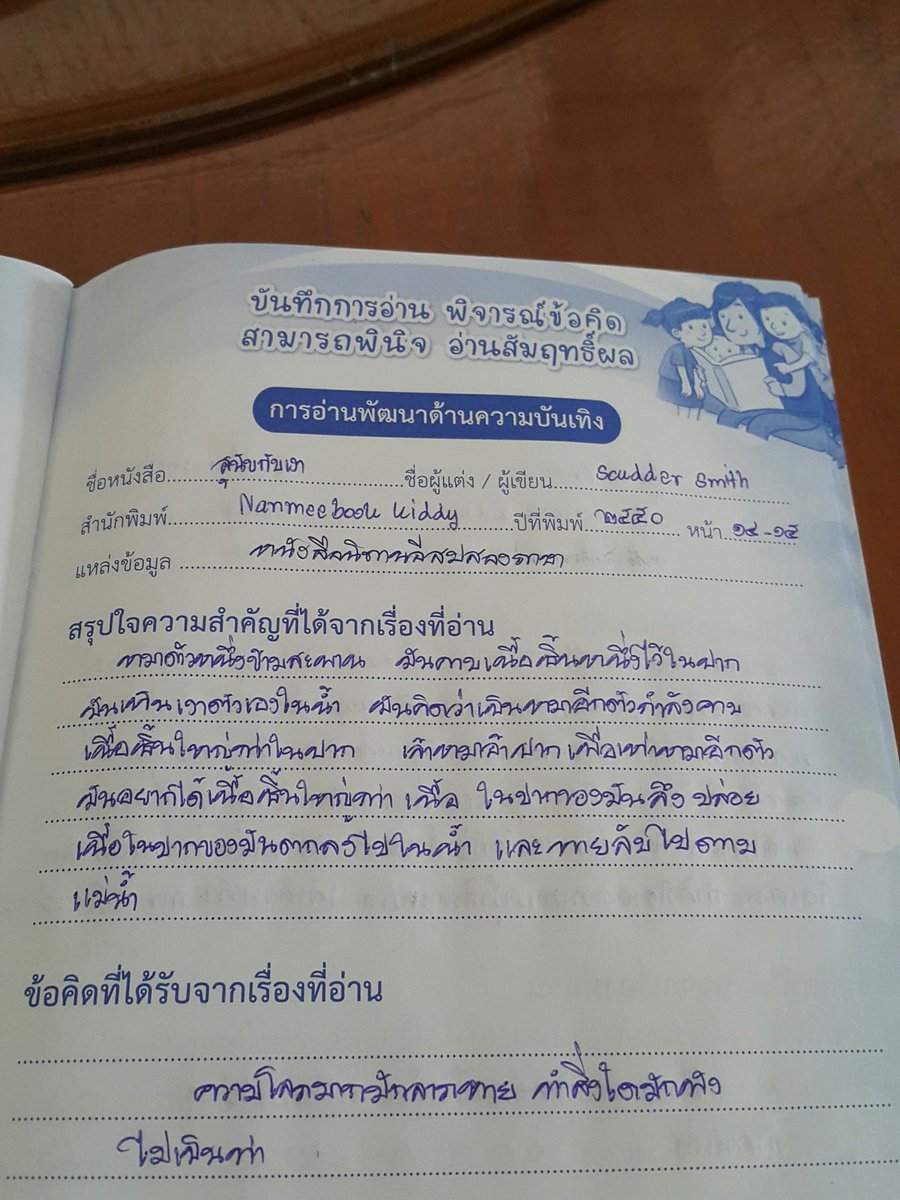 บันทึกการอ่าน พิจารณ์ข้อคิด
สามารถพินิจ อ่านสัมฤทธิ์ผล
การอ่านพัฒนาด้านความบันเทิง
ชื่อหนังสือ สุนัขกับเงา ชื่อผู้แต่ง / ผู้เขียน Scudder Smith
สำนักพิมพ์ Nanmeebook kiddy ปีที่พิมพ์ ๒๕๕๐ หน้า ๑๔-๑๕
แหล่งข้อมูล หนังสือนิทานอีสปสองภาษา
สรุปใจความสำคัญที่ได้จากเรื่องที่อ่าน
หมาตัวหนึ่งข้ามสะพาน มันคาบเนื้อชิ้นหนึ่งไว้ในปาก
มันเห็นเงาตัวเองในน้ำ มันคิดว่าเป็นหมาอีกตัวกำลังคาบ
เนื้อชิ้นใหญ่กว่าในปาก เจ้าหมาอ้าปาก เพื่อเห่าหมาอีกตัว
มันอยากได้เนื้อชิ้นใหญ่กว่า เนื้อ ในปากของมันจึง ปล่อย
เนื้อในปากของมันตกลงไปในน้ำ และหายลับไปตาม
แม่น้ำ
ข้อคิดที่ได้รับจากเรื่องที่อ่าน
ความโลภมากมักลาภหาย ทำสิ่งใดมักพัง
ไม่เป็นท่า